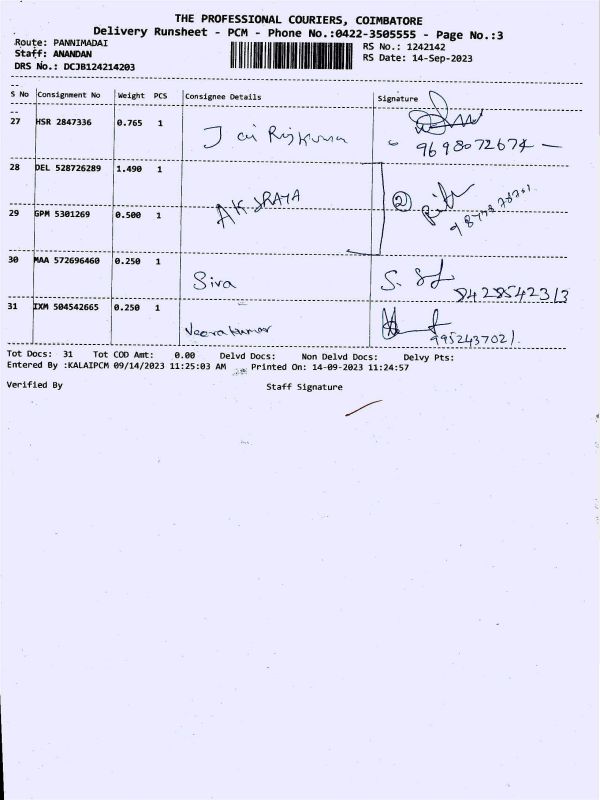 THE PROFESSIONAL COURIERS, COIMBATORE
Delivery Runsheet - PCM - Phone No.:0422-3505555 - Page No.:3
Route: PANNIMADAI
Staff: ANANDAN
DRS No.: DCJB124214203
RS No.: 1242142
RS Date: 14-Sep-2023
S No Consignment No Weight PCS Consignee Details Signature
27 HSR 2847336 0.765 1 Jai Rajkumar
9698072674 -
28 DEL 528726289 1.490 1
AKSRAYA ②
29 GPM 5301269 0.500 1
30 MAA 572696460 0.250 1 Siva S.
8428542313
31 IXM 504542665 0.250 1 Veerakumar
9952437021.
Tot Docs: 31 Tot COD Amt: 0.00 Delvd Docs: Non Delvd Docs: Delvy Pts:
Entered By :KALAIPCM 09/14/2023 11:25:03 AM Printed On: 14-09-2023 11:24:57
Verified By Staff Signature